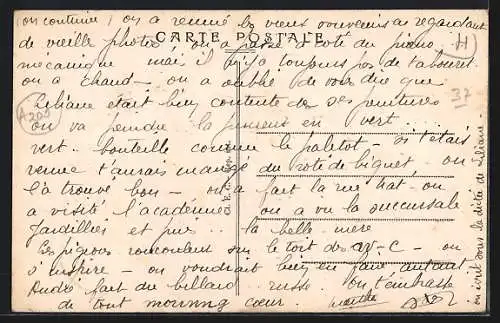 (on continue) on a remué les vieux souvenirs en regardant
de vieilles photos on a passé à côté du piano
CARTE POSTALE
mécanique mais il n'y a toujours pas de tabouret
on a chaud - on a oublié de vous dire que
Liliane était bien contente de ses peintures
on va peindre la en vert
vert bouteille comme le paletot - si t'étais
venue t'aurais mangé du rôti de biquet, on
l'a trouvé bon - on a fait la rue hat - on
a visité l'académie on a vu la succursale
Jardillier et puis ... la belle-mère
Les pigeons roucoulent sur le toit des W-C - on
s'inspire - on voudrait bien en faire autant
André fait du billard russe on t'embrasse
de tout mourning cœur.
H
37
A209
on écrit sous la dictée de Liliane.